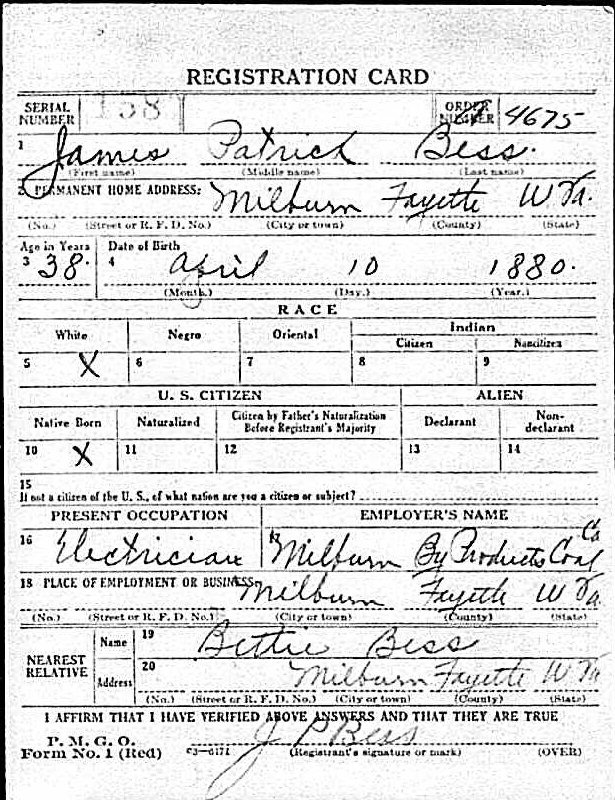 REGISTRATION CARD
SERIAL NUMBER 158 ORDER NUMBER 4675
1 James Patrick Bess.
(First name) (Middle name) (Last name)
2 PERMANENT HOME ADDRESS: Milburn Fayette W Va.
(No.) (Street or R. F. D. No.) (City or town) (County) (State)
Age in Years Date of Birth
3 38. 4 April 10 1880.
(Month.) (Day.) (Year.)
RACE
White Negro Oriental Indian
Citizen Noncitizen
5 X 6 7 8 9
U. S. CITIZEN ALIEN
Native Born Naturalized Citizen by Father's Naturalization Before Registrant's Majority Declarant Non-declarant
10 X 11 12 13 14
15
If not a citizen of the U. S., of what nation are you a citizen or subject?
PRESENT OCCUPATION EMPLOYER'S NAME
16 Electrician 17 Milburn By Products Coal Co
18 PLACE OF EMPLOYMENT OR BUSINESS: Milburn Fayette W Va
(No.) (Street or R. F. D. No.) (City or town) (County) (State)
NEAREST RELATIVE Name 19 Bettie Bess
Address 20 Milburn Fayette W Va
(No.) (Street or R. F. D. No.) (City or town) (County) (State)
I AFFIRM THAT I HAVE VERIFIED ABOVE ANSWERS AND THAT THEY ARE TRUE
P. M. G. O.
Form No. 1 (Red) 03-6171 J P Bess
(Registrant's signature or mark) (OVER)